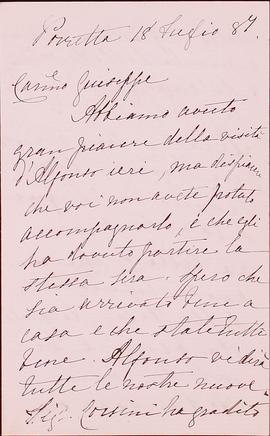 Poretta 18 Luglio 87.
Carmo Giuseppe
Abbiamo avuto
gran piacere della visita
d'Alfonso ieri, ma dispiacere
che voi non avete potuto
accompagnarlo, e che egli
ha dovuto partire la
stessa sera. Spero che
sia arrivato bene a
casa e che state tutti
bene. Alfonso vi dirà
tutte le nostre nuove.
Sigr. Corsini ha gradito